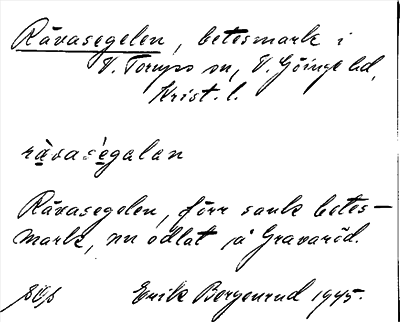 Råvasegelen, betesmark i
V. Torups sn, V. Göinge hd,
Krist. l.
råvasègalan
Råvasegelen, förr sank betes-
mark, nu odlat på Gravaröd.
Erik Bergenrud 1945.